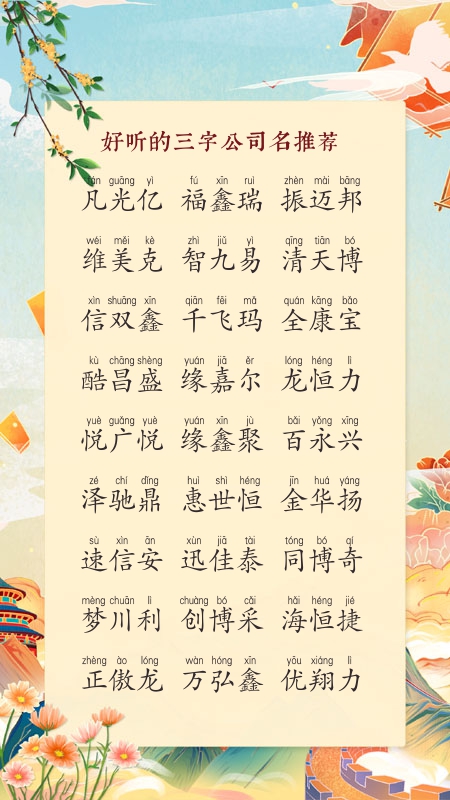 好听的三字公司名推荐
fán guāng yì fú xīn ruì zhèn mài bāng
凡光亿 福鑫瑞 振迈邦
wéi měi kè zhì jiǔ yì qīng tiān bó
维美克 智九易 清天博
xìn shuāng xīn qiān fēi mǎ quán kāng bǎo
信双鑫 千飞玛 全康宝
kù chāng shèng yuán jiā ěr lóng héng lì
酷昌盛 缘嘉尔 龙恒力
yuè guǎng yuè yuán xīn jù bǎi yǒng xīng
悦广悦 缘鑫聚 百永兴
zé chí dǐng huì shì héng jīn huá yáng
泽驰鼎 惠世恒 金华扬
sù xìn ān xùn jiā tài tóng bó qí
速信安 迅佳泰 同博奇
mèng chuān lì chuàng bó cǎi hǎi héng jié
梦川利 创博采 海恒捷
zhèng ào lóng wàn hóng xīn yōu xiáng lì
正傲龙 万弘鑫 优翔力